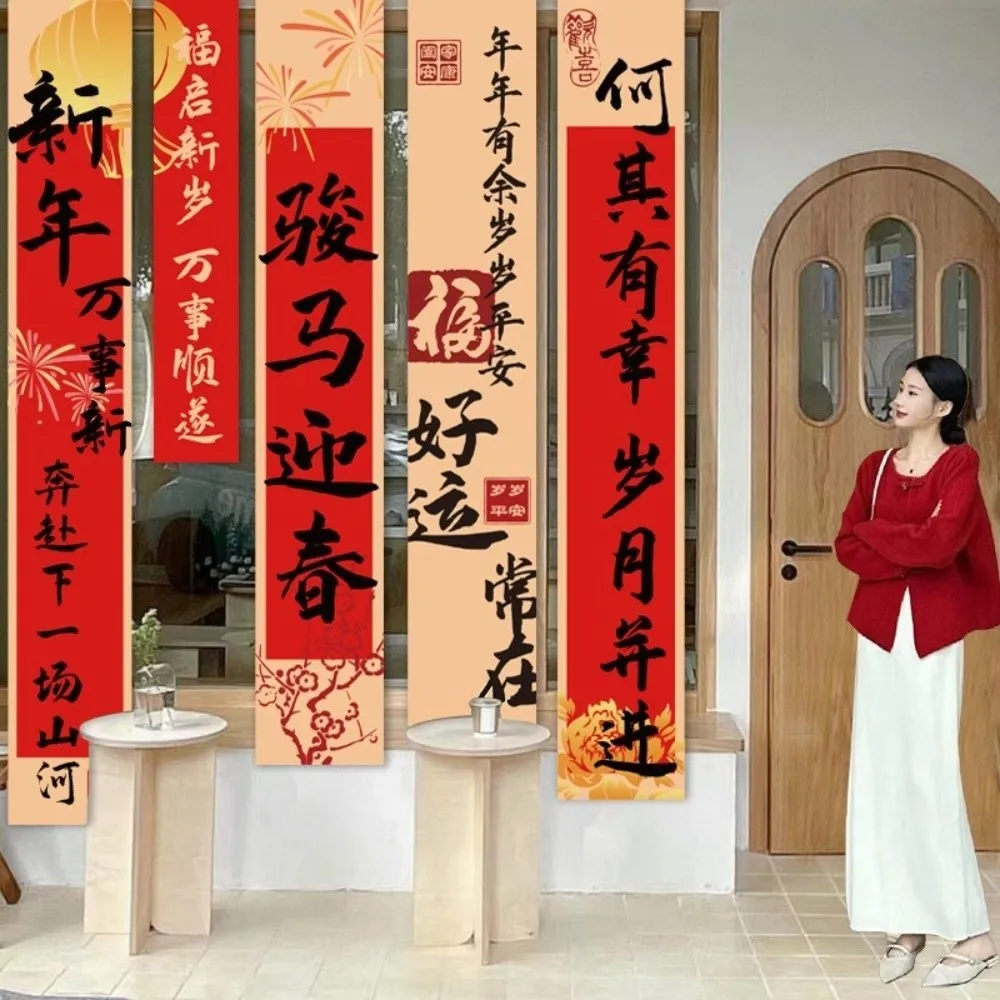 新年
万事新
奔赴下一场山河
福启新岁 万事顺遂
骏马迎春
年年有余岁岁平安
福
好运
岁岁
平安
常在
何其有幸 岁月并进